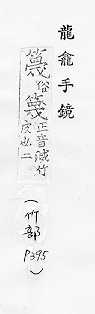 龍龕手鏡
俗篾正音滅竹
皮也二
(竹部
P395)